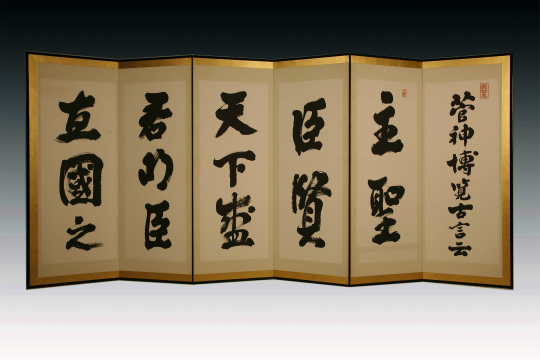 菅神博覧古言云
主聖
臣賢
天下盛
君明臣
直國之